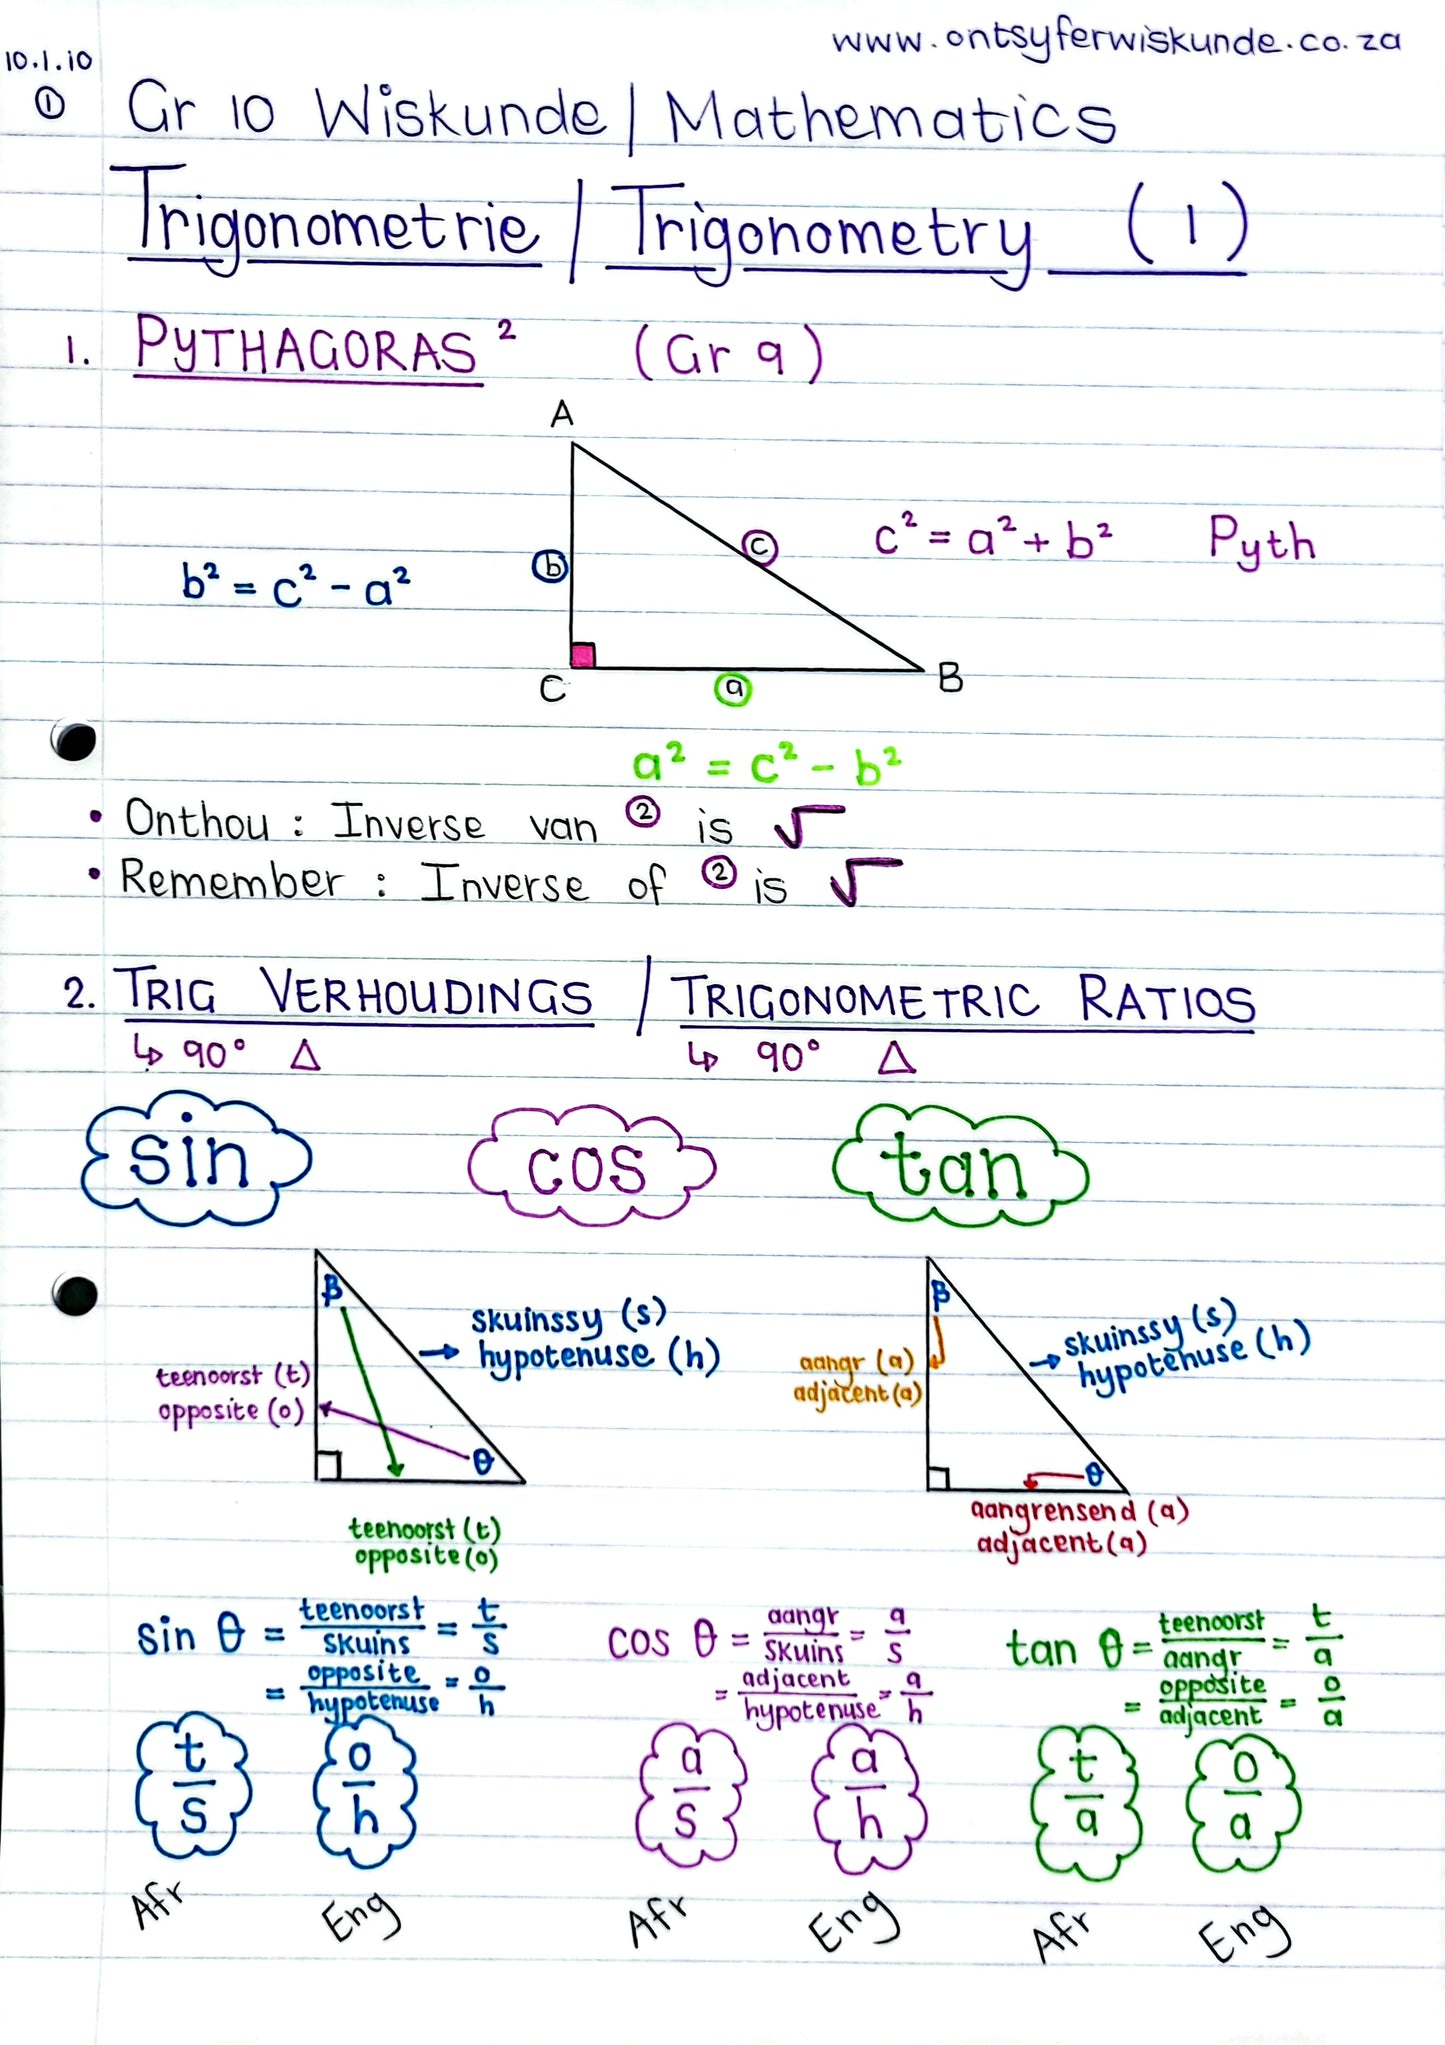 www.ontsyferwiskunde.co.za
10.1.10
① Gr 10 Wiskunde / Mathematics
Trigonometrie / Trigonometry (1)
1. PYTHAGORAS ² (Gr 9)
A
c² = a² + b² Pyth
c
b
b² = c² - a²
C
a
B
a² = c² - b²
• Onthou : Inverse van ② is √
• Remember : Inverse of ② is √
2. TRIG VERHOUDINGS / TRIGONOMETRIC RATIOS
↳ 90° △ ↳ 90° △
sin cos tan
β
skuinssy (s)
hypotenuse (h)
teenoorst (t)
opposite (o)
θ
teenoorst (t)
opposite (o)
β
skuinssy (s)
hypotenuse (h)
aangr (a)
adjacent (a)
θ
aangrensend (a)
adjacent (a)
sin θ = teenoorst/skuins = t/s
= opposite/hypotenuse = o/h
cos θ = aangr/skuins = a/s
= adjacent/hypotenuse = a/h
tan θ = teenoorst/aangr = t/a
= opposite/adjacent = o/a
t/s o/h a/s a/h t/a o/a
Afr Eng Afr Eng Afr Eng